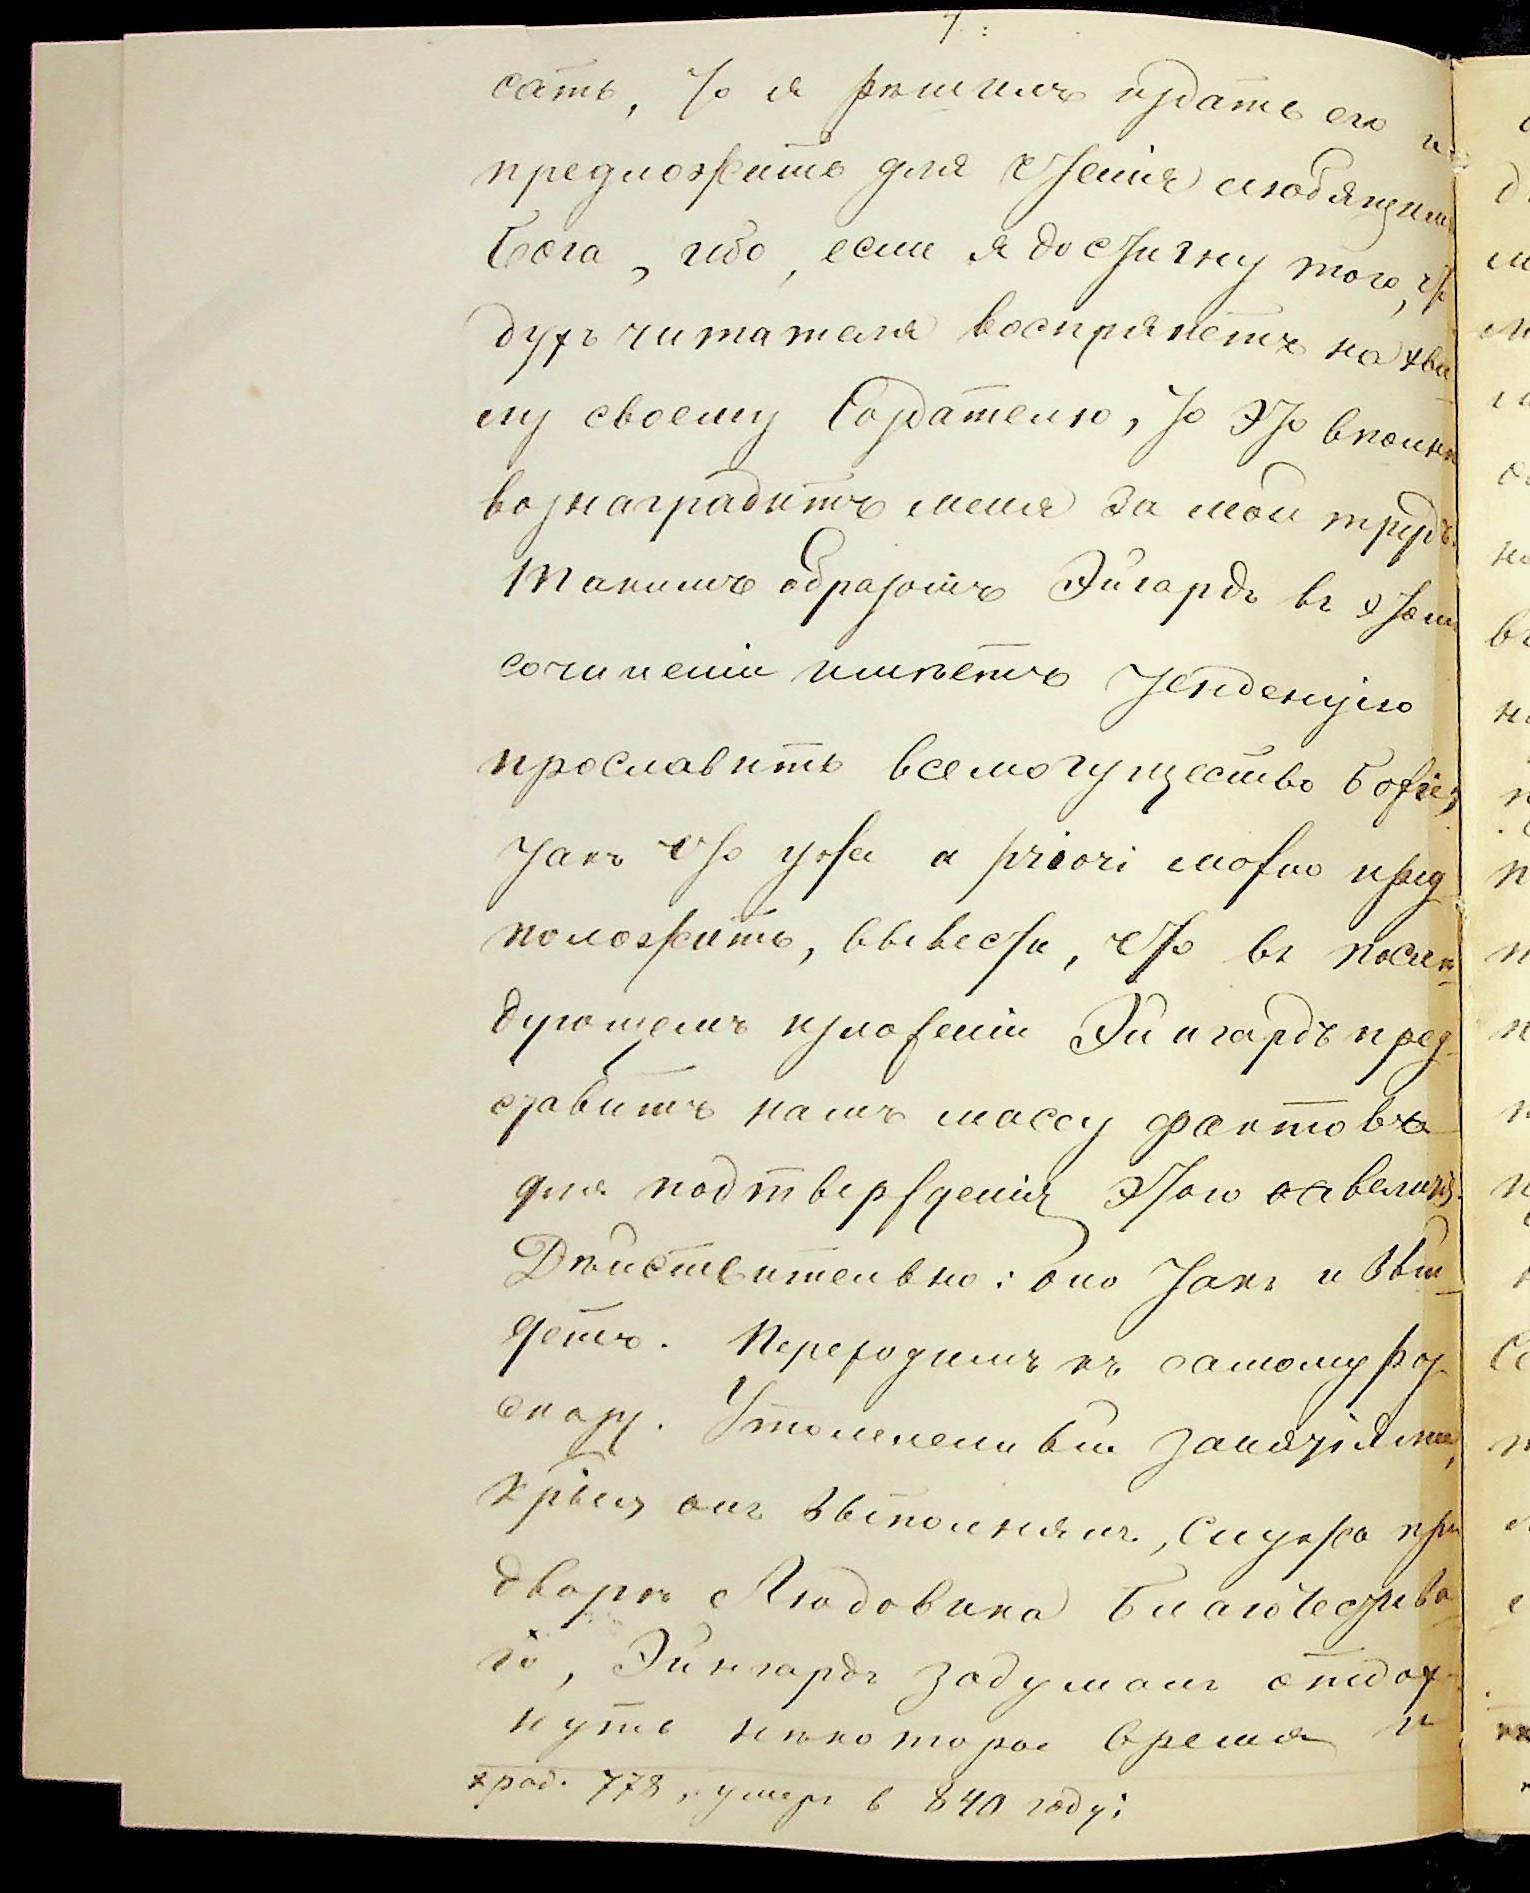 7:
сать, что я рѣшилъ издать его и
предложить для чтенія любящимъ
Бога, ибо, если я достигну того, что
духъ читателя воспрянетъ на хва-
лу своему Создателю, то это вполнѣ
вознаградитъ меня за мой трудъ.
Такимъ образомъ Эйнгардъ въ этомъ
сочиненіи имѣетъ тенденцію
прославить всемогущество Божіе,
такъ что уже a priori можно пред-
положить, вывести, что въ послѣ-
дующемъ изложеніи Эйнгардъ пред-
ставитъ намъ массу фактовъ
для подтвержденія этого величія.
Дѣйствительно: оно такъ и вый-
детъ. Переходимъ къ самому раз-
сказу. Утомленный занятіями,
кръія онъ выполнялъ, служа при
дворѣ Людовика Благочестива-
го, Эйнгардъ задумалъ отдох-
нуть нѣкоторое время и
*род. 778, умеръ в 840 году;